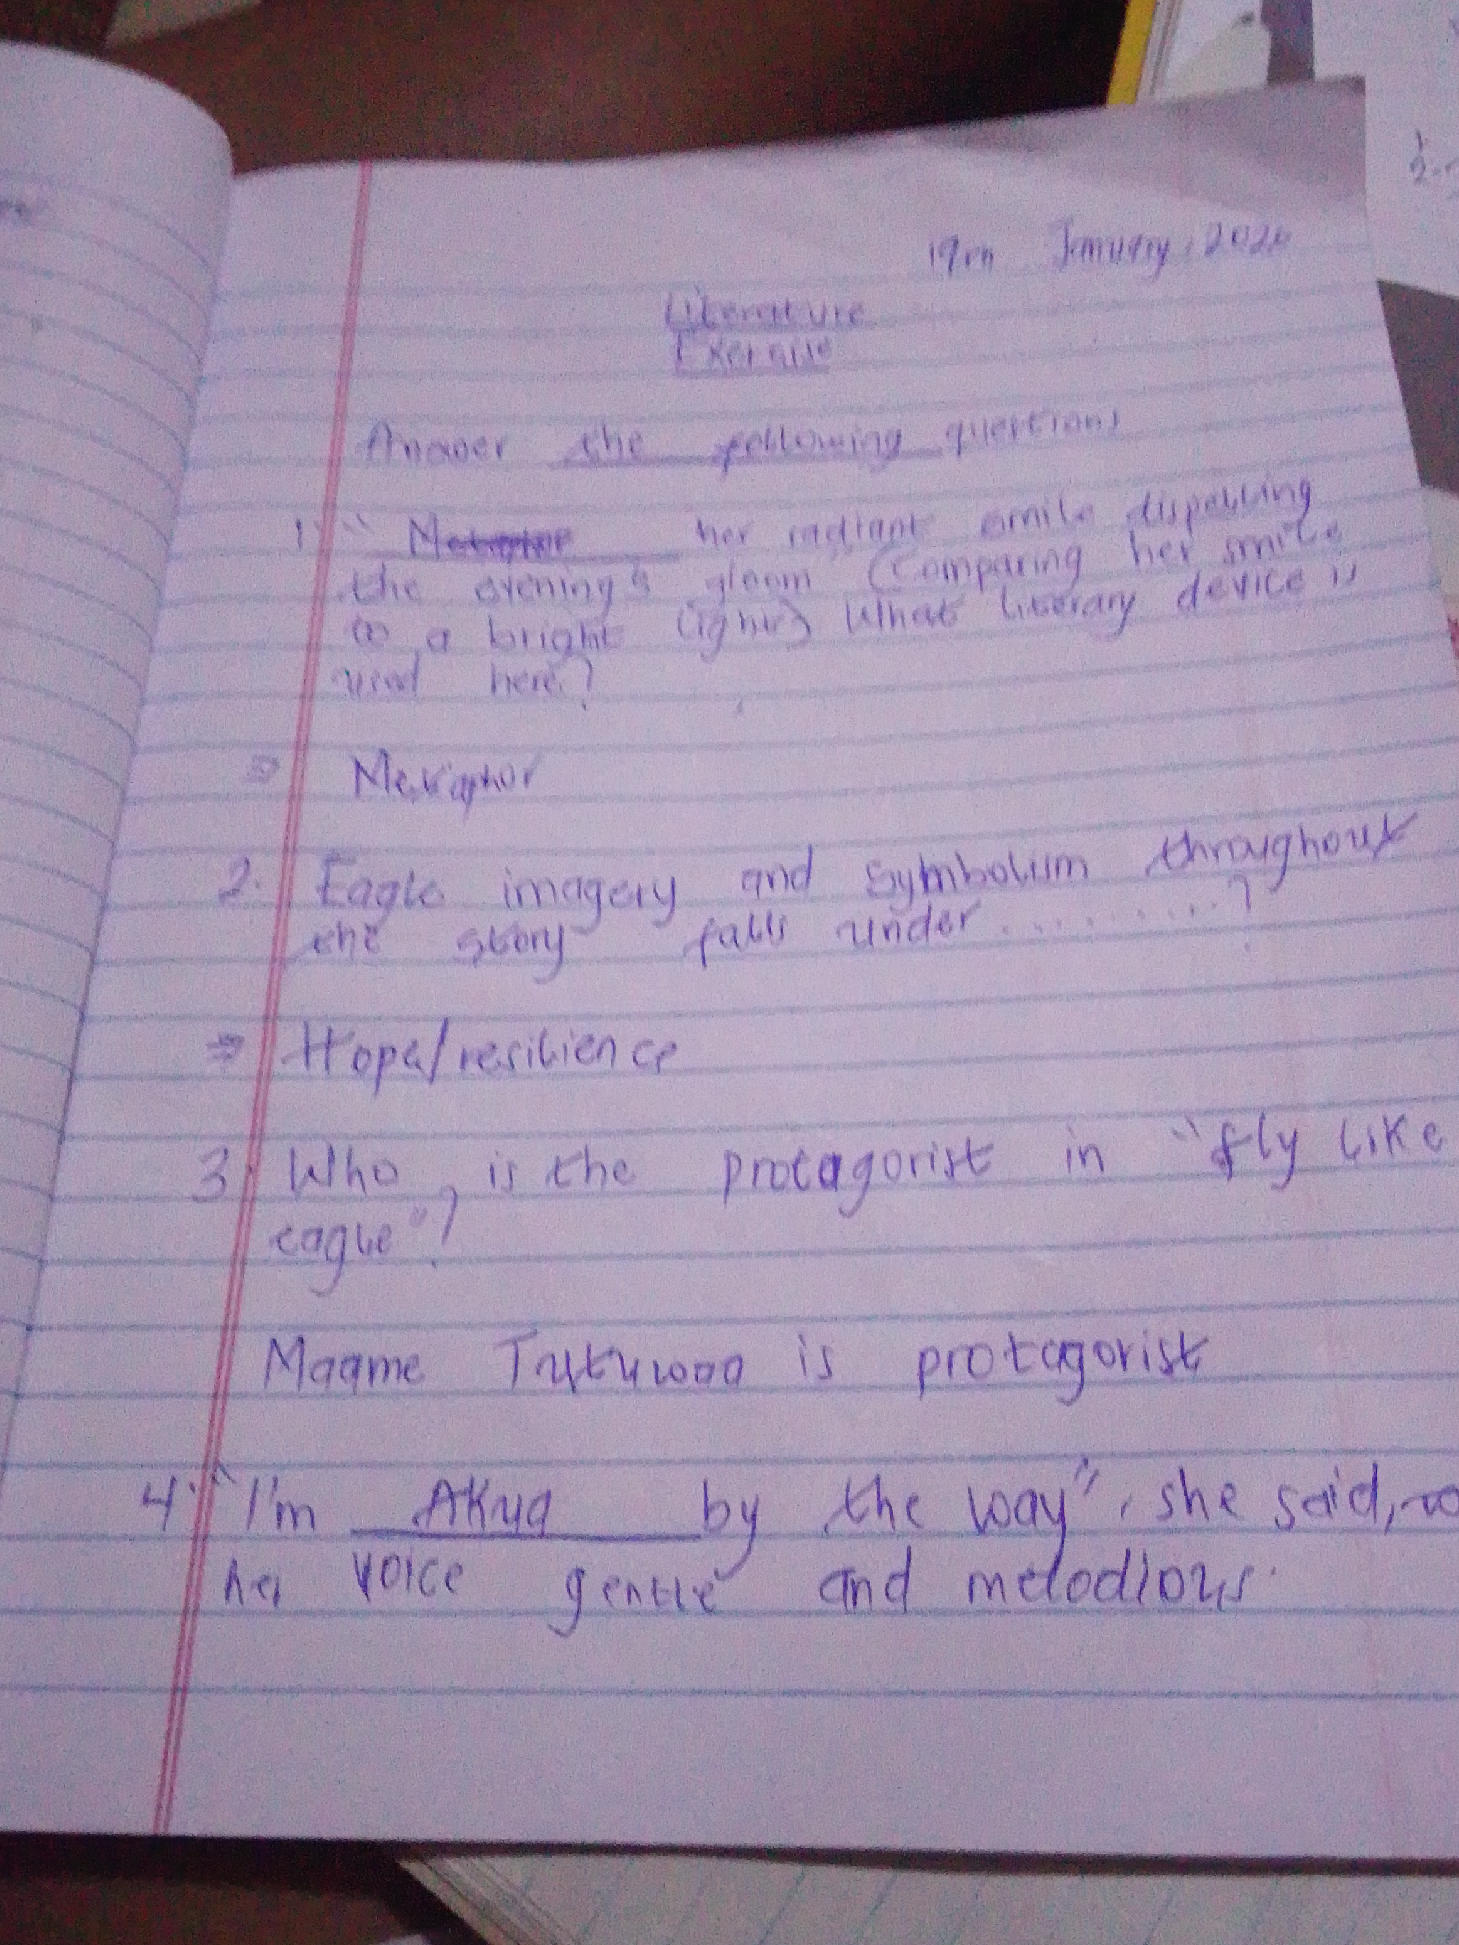 19th January, 2026
Literature
Exercise
Answer the following questions
1. " her radiant smile dispelling
the evening's gloom" (Comparing her smile
to a bright light) What literary device is
used here?
⇒ Metaphor
2. Eagle imagery and symbolism throughout
the story falls under ..........?
⇒ Hope/resilience
3. Who is the protagorist in "fly like
eagle"?
Maame Tutuwaa is protagorist
4. "I'm Akua by the way", she said,
her voice gentle and melodious.